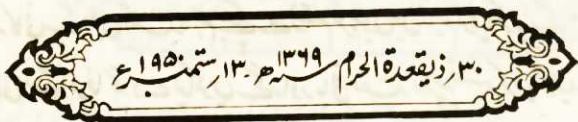 ۳۰؍ ذیقعدۃ الحرام ۱۳۶۹ھ ۔ ۱۳؍ ستمبر ۱۹۵۰ء